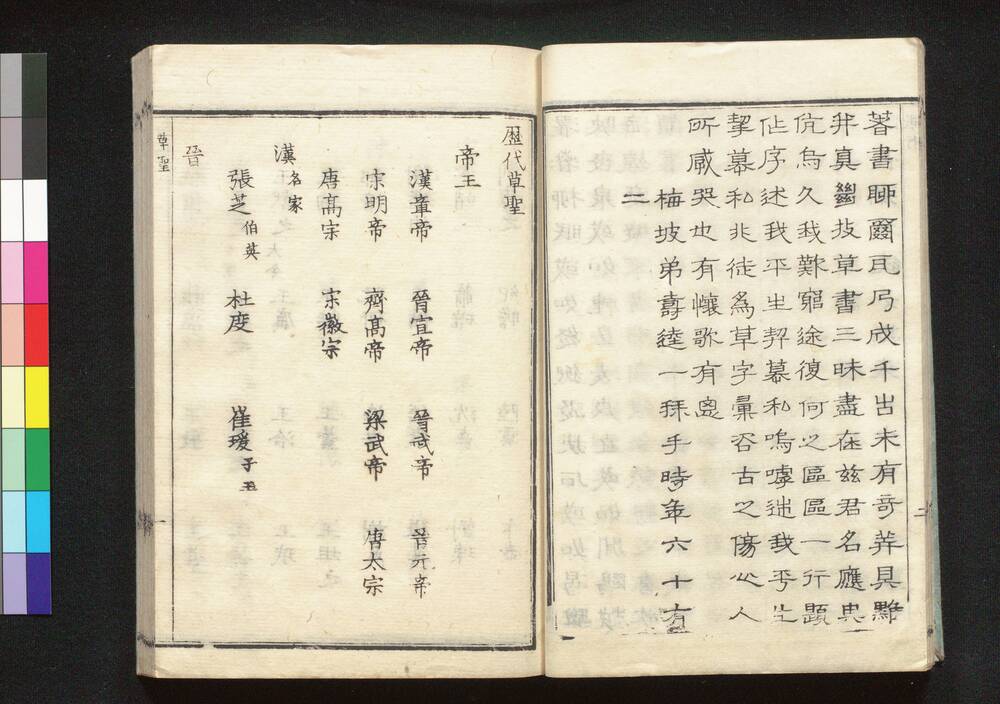 著書聊爾瓦弓成千古未有奇莽具黟
幷真幽技草書三昧盡在玆君名應典
伉烏久我難窮途復何之區區一行題
作序述我平生契慕私嗚嘑述我平生
挈慕私非徒為草字彙咨古之傷心人
所咸哭也有懷歌有
梅坡弟壽逵一拜手時年六十有
二
歷代草聖
帝王
漢章帝 晉宣帝 晉武帝 晉元帝
宋明帝 齊高帝 梁武帝 唐太宗
唐高宗 宋徽宗
漢名家
張芝伯英 杜度 崔瑗子玉
晉
草聖
一